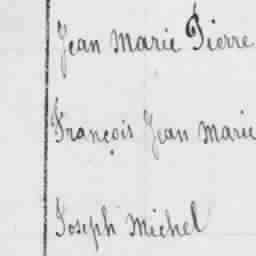 Jean Marie Pierre
François Jean Marie
Joseph Michel